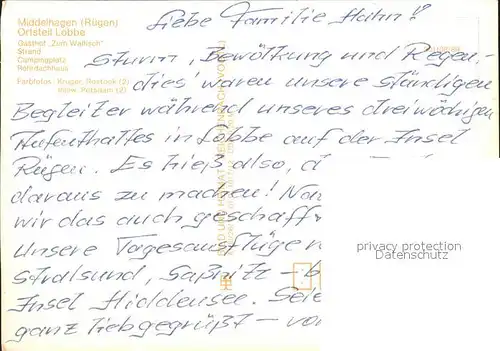 Middelhagen (Rügen)
Ortsteil Lobbe
Gasthof „Zum Walfisch“
Strand
Campingplatz
Rohrdachhaus
Farbfotos: Krüger, Rostock (2)
Potsdam (2)
Liebe Familie Hahn!
Sturm, Bewölkung und Regen,
dies waren unsere ständigen
Begleiter während unseres dreiwöchigen
Aufenthaltes in Lobbe auf der Insel
Rügen. Es hieß also, d
daraus zu machen!
wir das auch geschaff
Unsere Tagesausflüge n
Stralsund, Saßnitz – b
Insel Hiddensee. Seie
ganz liebgegrüßt – vo
BILD UND HEIMAT REICHENBACH (VOGTL)
privacy protection
Datenschutz